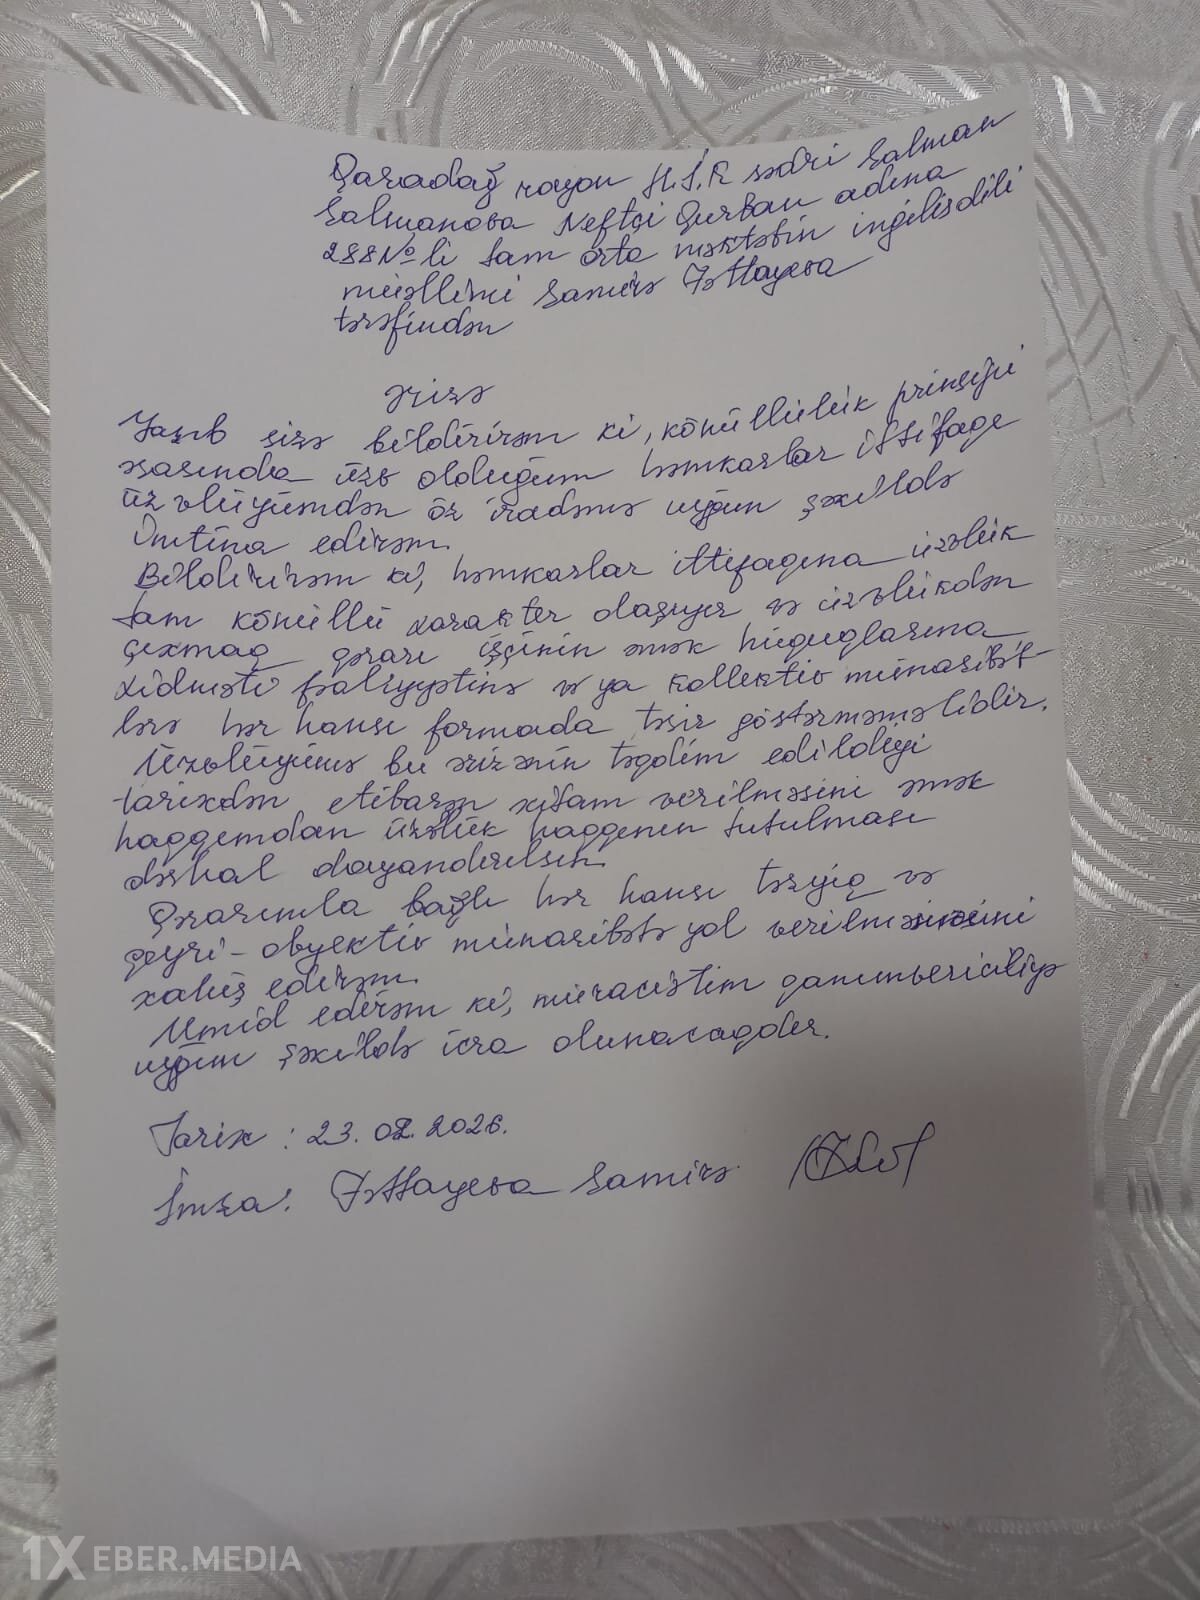 Qaradağ rayon H.İ.R sədri Salman
Salmanova Neftçi Qurban adına
288№li tam orta məktəbin ingilisdili
müəllimi Samirə Fəttayeva
tərəfindən
ərizə
Yazıb sizə bildirirəm ki, könüllülük prinsipi
əsasında üzv olduğum həmkarlar ittifaqı
üzvlüyümdən öz iradəmə uyğun şəkildə
İmtina edirəm.
Bildirirəm ki, həmkarlar ittifaqına üzvlük
tam könüllü xarakter daşıyır və üzvlükdən
çıxmaq qərarı işçinin əmək hüquqlarına
xidməti fəaliyyətinə və ya kollektiv münasibət-
lərə hər hansı formada təsir göstərməməlidir.
Üzvlüyümə bu ərizənin təqdim edildiyi
tarixdən etibarən xitam verilməsini əmək
haqqımdan üzvlük haqqının tutulması
dərhal dayandırılsın.
Qərarımla bağlı hər hansı təzyiq və
qeyri-obyektiv münasibətə yol verilməməsini
xahiş edirəm.
Ümid edirəm ki, müraciətim qanunvericiliyə
uyğun şəkildə icra olunacaqdır.
Tarix: 23.02.2026.
İmza: Fəttayeva Samirə
1XEBER.MEDIA